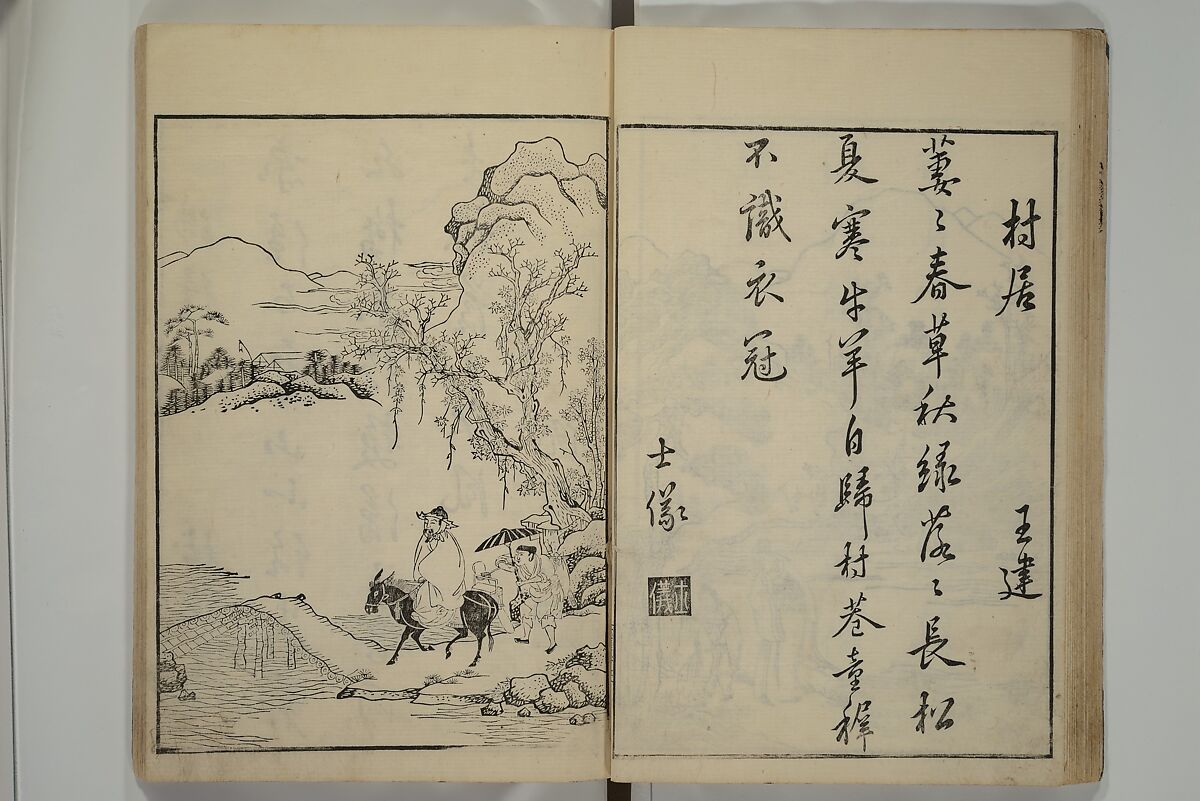 村居 王建
萋〻春草秋綠落〻長松
夏寒牛羊自歸村巷童稺
不識衣冠
士儀